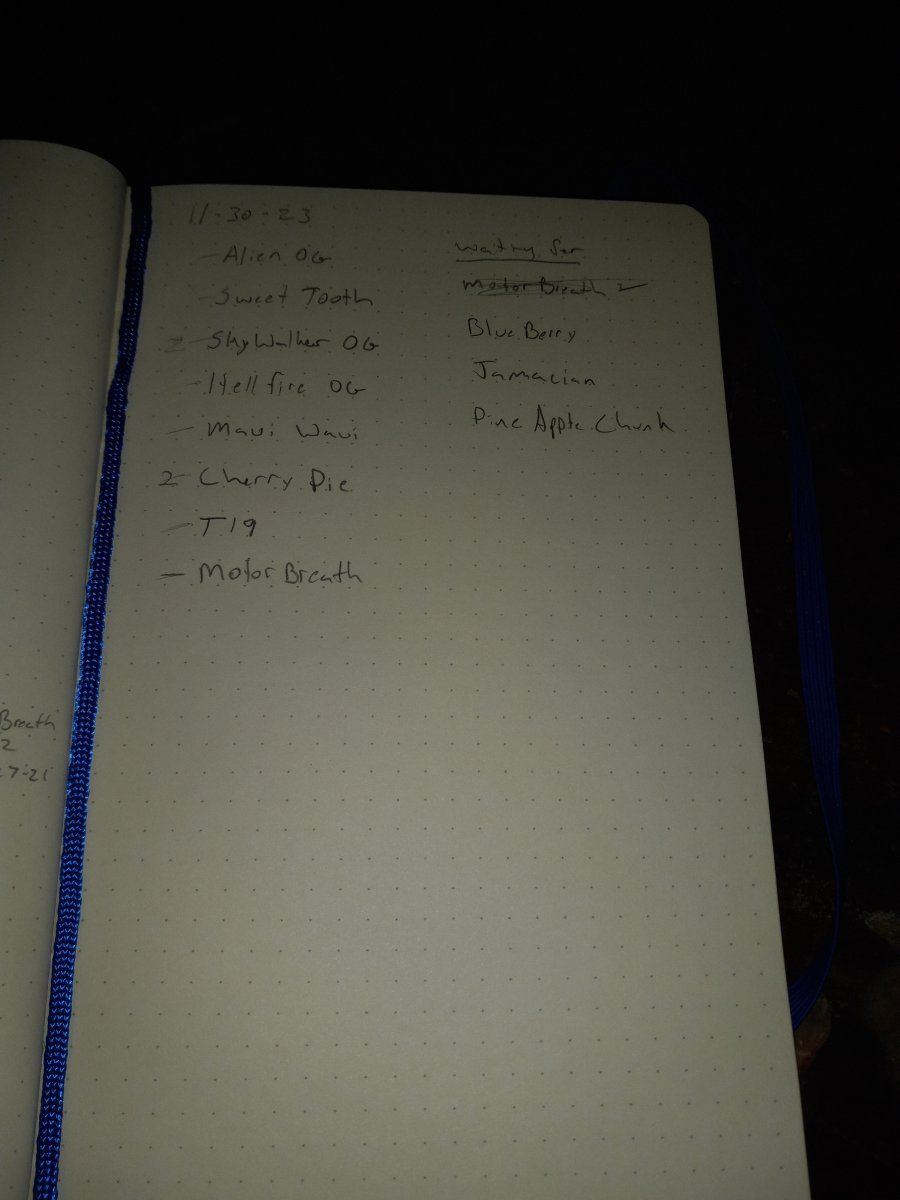 11-30-23
- Alien OG
- Sweet Tooth
2 - SkyWalker OG
- Hellfire OG
- Maui Waui
2 Cherry Pie
- T19
- Motor Breath
waiting for
Motor Breath ✓
Blue Berry
Jamacian
Pine Apple Chunk
Breath
2
27-21